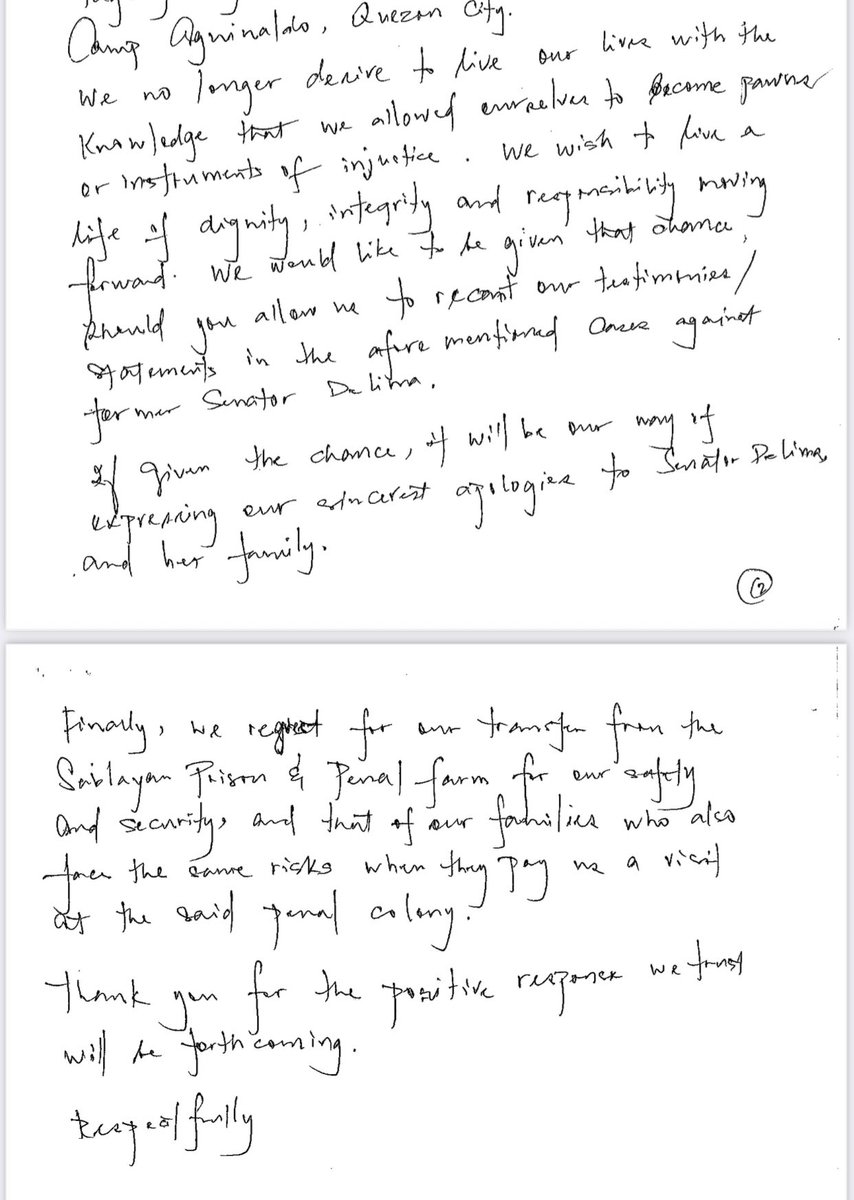 Camp Aguinaldo, Quezon City.
We no longer desire to live our lives with the
knowledge that we allowed ourselves to become pawns
or instruments of injustice. We wish to live a
life of dignity, integrity and responsibility moving
forward. We would like to be given that chance,
should you allow us to recant our testimonies/
statements in the afore mentioned cases against
former Senator De Lima.
If given the chance, it will be our way of
expressing our sincerest apologies to Senator De Lima,
and her family.
2
Finally, we request for our transfer from the
Sablayan Prison & Penal farm for our safety
and security, and that of our families who also
face the same risks when they pay us a visit
at the said penal colony.
Thank you for the positive response we trust
will be forthcoming.
Respectfully